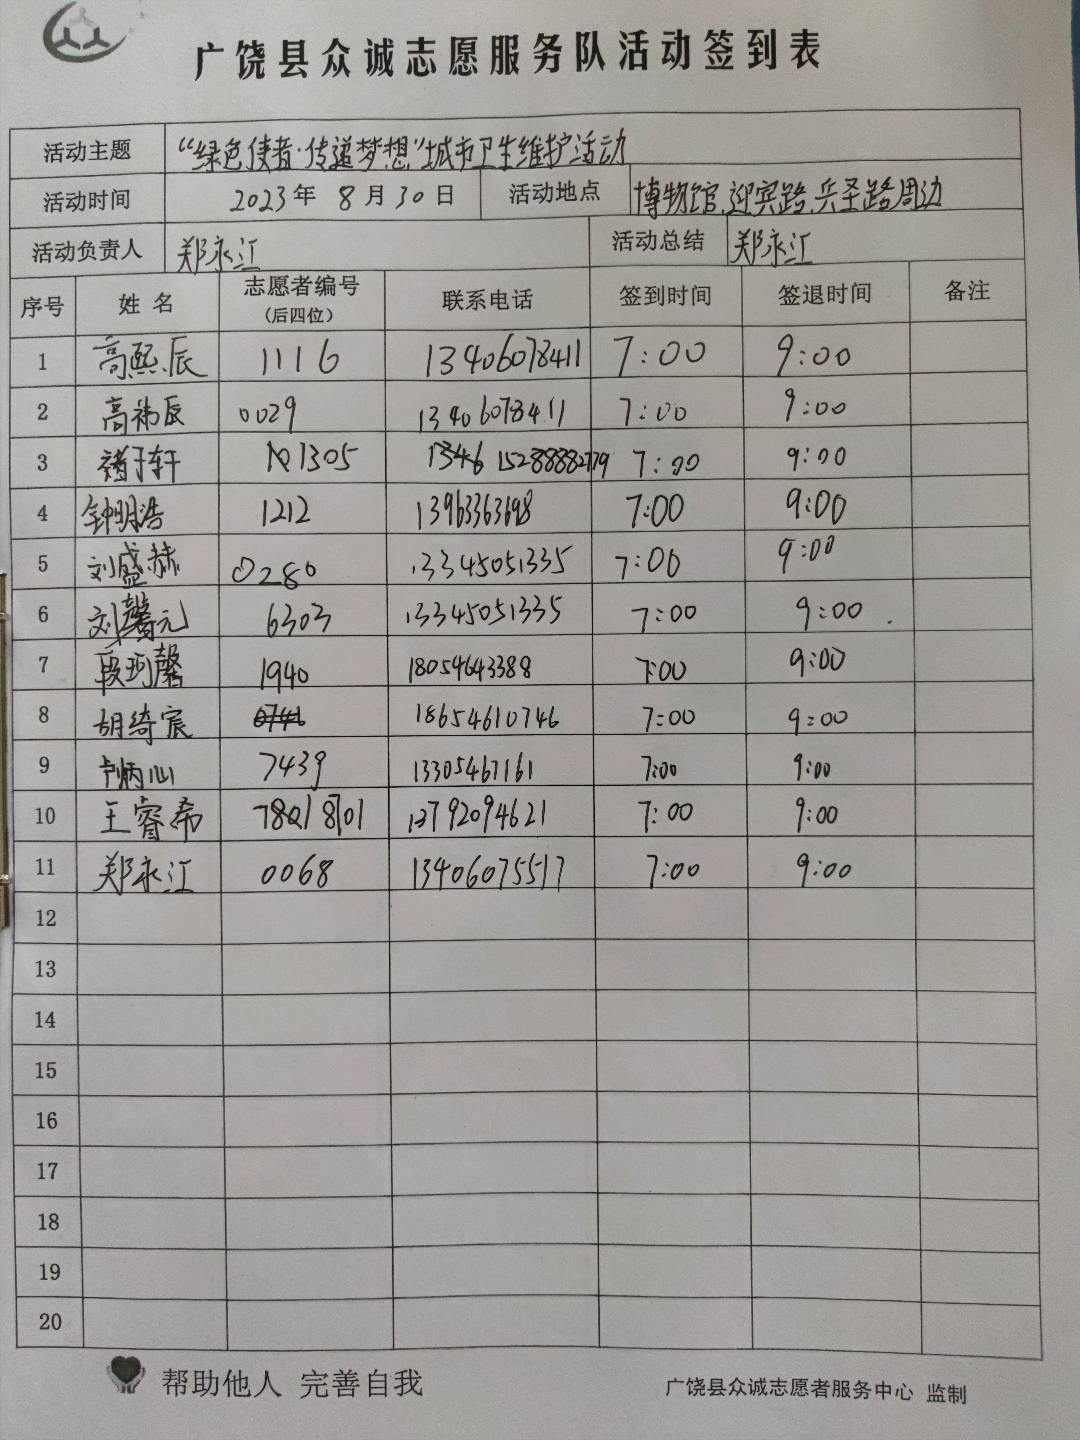 广饶县众诚志愿服务队活动签到表
活动主题 “绿色使者·传递梦想”城市卫生维护活动
活动时间 2023年 8月30日 活动地点 博物馆、迎宾路、兵圣路周边
活动负责人 郑永江 活动总结 郑永江
序号 姓 名 志愿者编号 (后四位) 联系电话 签到时间 签退时间 备注
1 高熙辰 1116 13406078411 7:00 9:00
2 高祎辰 0029 13406078411 7:00 9:00
3 褚于轩 1305 15288882779 7:00 9:00
4 钟明浩 1212 13963363698 7:00 9:00
5 刘盛赫 0280 13345051335 7:00 9:00
6 刘馨元 6303 13345051335 7:00 9:00
7 段珂馨 1940 18054643388 7:00 9:00
8 胡绮宸 0746 18654610746 7:00 9:00
9 卢炳心 7439 13305467161 7:00 9:00
10 王睿希 8701 13792094621 7:00 9:00
11 郑永江 0068 13406075517 7:00 9:00
12
13
14
15
16
17
18
19
20
帮助他人 完善自我
广饶县众诚志愿者服务中心 监制